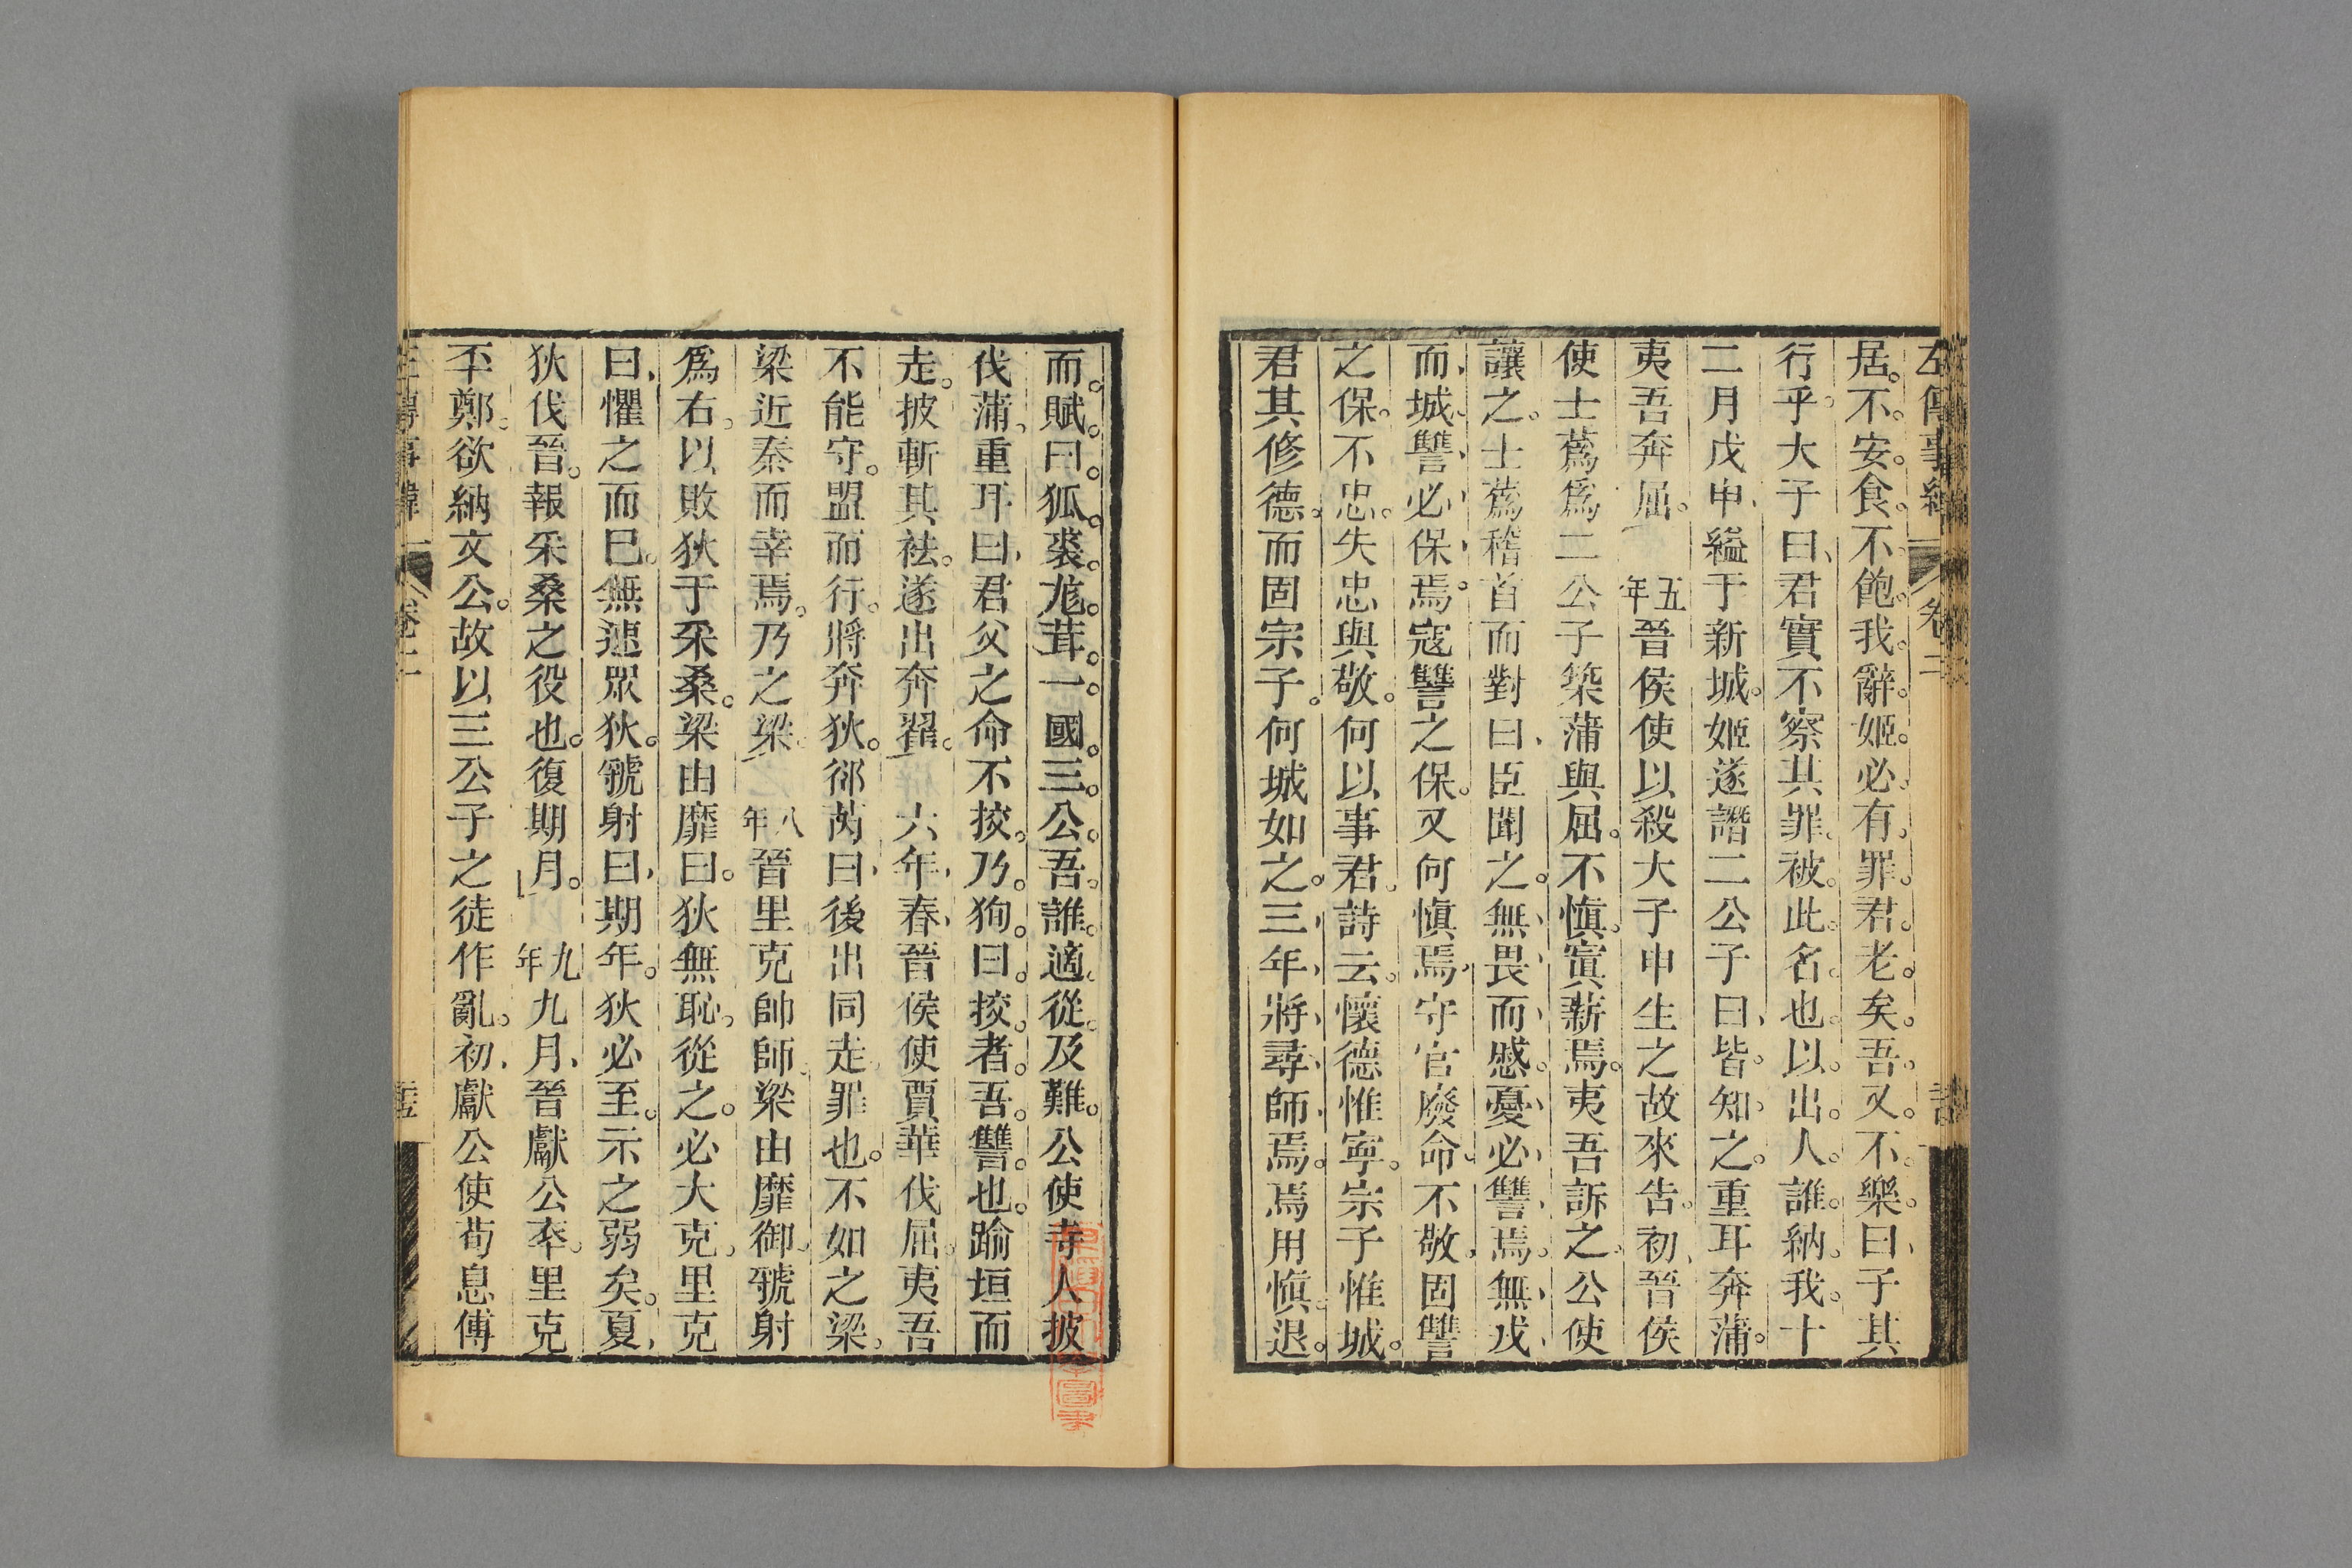 居。不。安。食。不。飽。我。辭。姬。必。有。罪。君。老。矣。吾。又。不。樂。曰、子其
行乎。大子曰、君實不察其罪。被。此。名。也。以。出。人。誰。納。我。十
二月戊申、縊于新城。姬遂譖二公子曰、皆。知。之。重耳奔蒲。
夷吾奔屈。五年晉侯使以殺大子申生之故來告。初、晉侯
使士蔿爲二公子築蒲與屈。不愼。寘薪焉。夷吾訴之。公使
讓之。士蔿稽首而對曰、臣聞之。無、畏、而、慼。憂、必、讐、焉。無、戎、
而、城、讐、必、保、焉。寇讐之保。又何愼焉、守官廢命、不敬、固讐
之保。不忠。失忠與敬。何以事君。詩云。懷德惟寧。宗子惟城。
君其修德。而固宗子。何城如之。三、年、將、尋、師、焉。焉用愼。退。
而。賦。曰。狐。裘。尨。茸。一。國。三。公。吾。誰。適。從。及難。公使寺人披
伐蒲。重耳曰、君父之命不挍。乃。狥。曰。挍。者。吾。讐。也。踰垣而
走。披斬其袪。遂出奔翟。六年、春、晉侯使賈華伐屈。夷吾
不能守。盟而行。將奔狄。郤芮曰、後出同走、罪也。不如之梁。
梁近秦而幸焉。乃之梁。八年晉里克帥師。梁由靡御。虢射
爲右。以敗狄于采桑。梁由靡曰。狄無恥。從之。必大克。里克
曰、懼之而已。無速眾狄。虢射曰、期年。狄必至。示之弱矣。夏、
狄伐晉。報采桑之役也。復期月。九年九月、晉獻公卒。里克
㔻鄭。欲納文公。故以三公子之徒作亂。初、獻公使荀息傅